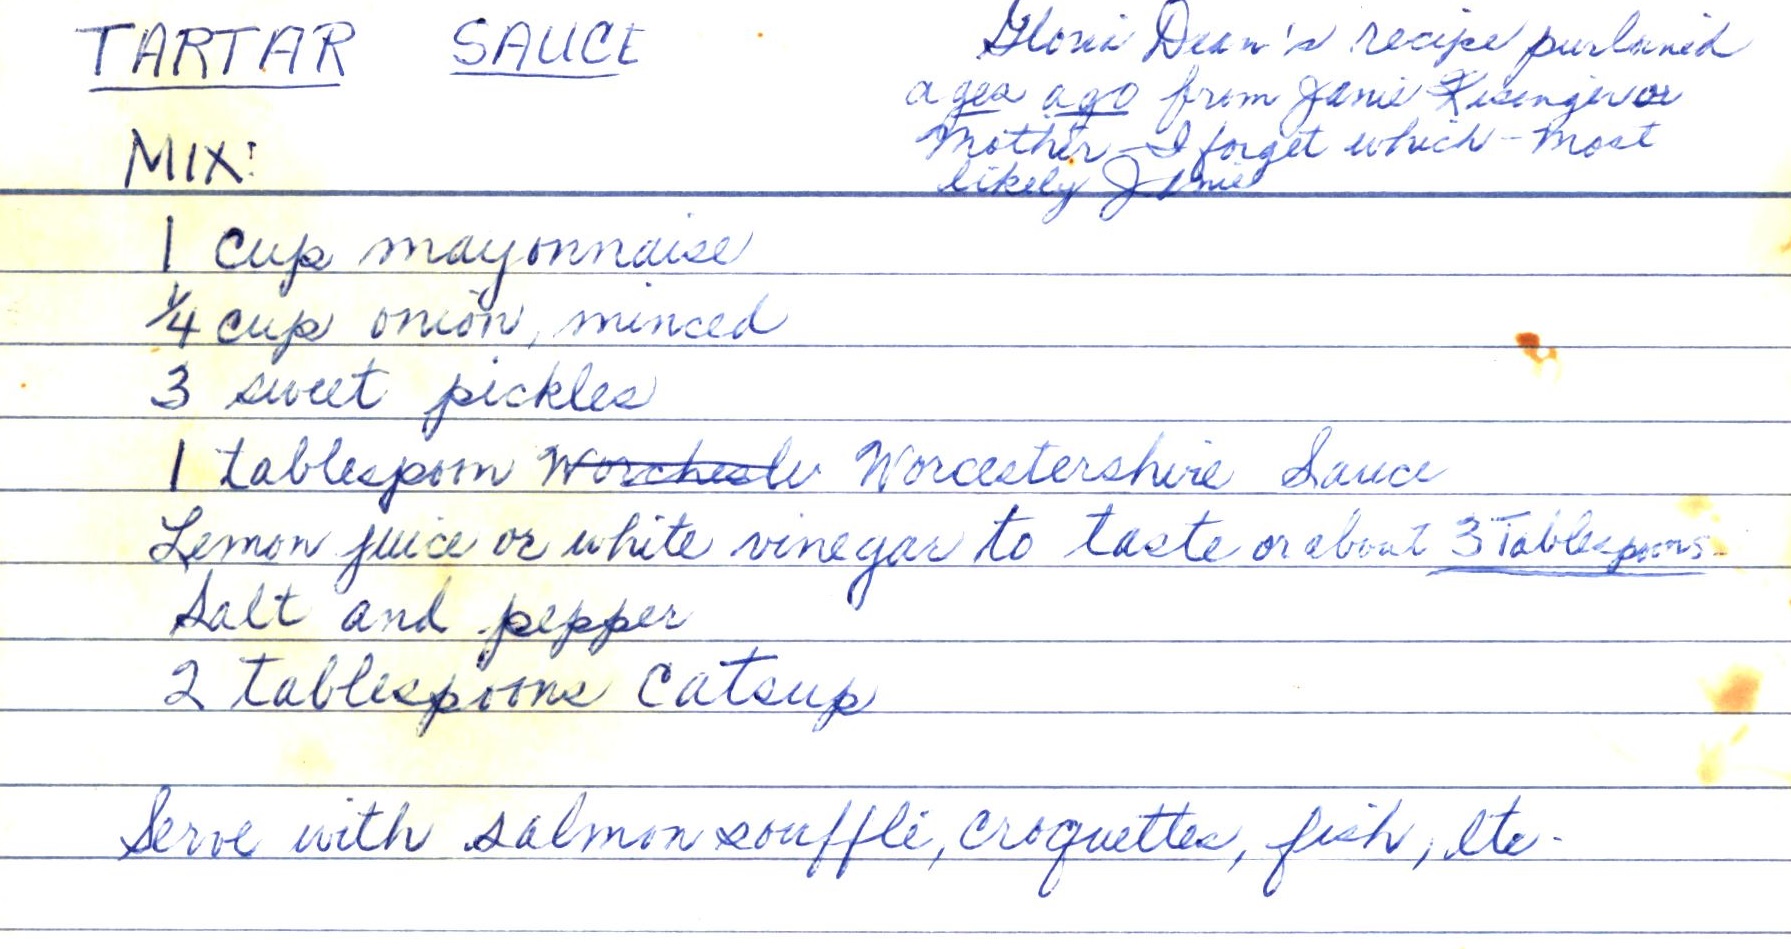 TARTAR SAUCE
Gloria Dean's recipe purloined
ages ago from Janie Kisinger or
Mother - I forget which - most
likely Janie
MIX:
1 cup mayonnaise
1/4 cup onion, minced
3 sweet pickles
1 tablespoon Worchester Worcestershire Sauce
Lemon juice or white vinegar to taste or about 3 Tablespoons.
Salt and pepper
2 tablespoons catsup
Serve with salmon soufflé, croquettes, fish, etc.